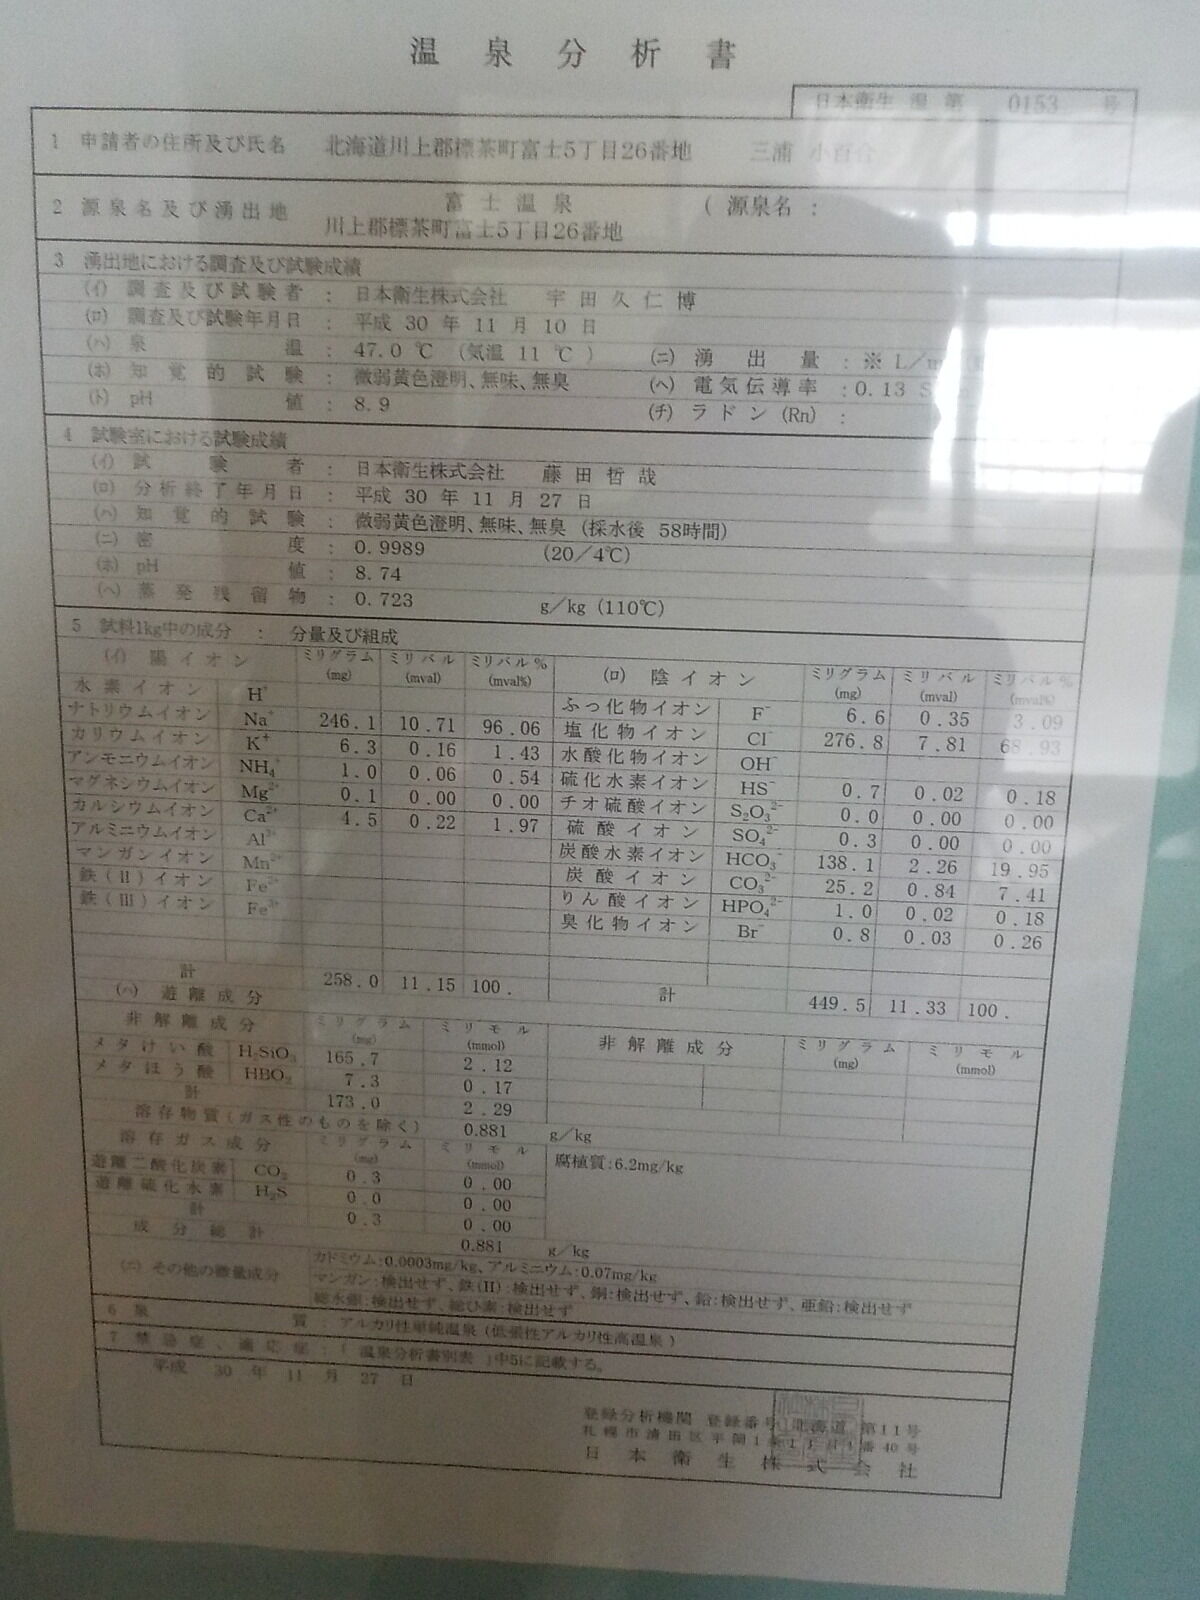 温泉分析書
日本衛生 温 第 0153 号
1 申請者の住所及び氏名 北海道川上郡標茶町富士5丁目26番地 三浦 小百合
2 源泉名及び湧出地 富士温泉 (源泉名:
川上郡標茶町富士5丁目26番地
3 湧出地における調査及び試験成績
(イ) 調査及び試験者 : 日本衛生株式会社 宇田久仁博
(ロ) 調査及び試験年月日 : 平成 30 年 11 月 10 日
(ハ) 泉温 : 47.0 ℃ (気温 11 ℃) (ニ) 湧出量 : ※ L/m
(ホ) 知覚的試験 : 微弱黄色澄明、無味、無臭 (ヘ) 電気伝導率 : 0.13 S
(ト) pH値 : 8.9 (チ) ラドン (Rn) :
4 試験室における試験成績
(イ) 試験者 : 日本衛生株式会社 藤田哲哉
(ロ) 分析終了年月日 : 平成 30 年 11 月 27 日
(ハ) 知覚的試験 : 微弱黄色澄明、無味、無臭 (採水後 58時間)
(ニ) 密度 : 0.9989 (20/4℃)
(ホ) pH値 : 8.74
(ヘ) 蒸発残留物 : 0.723 g/kg (110℃)
5 試料1kg中の成分 : 分量及び組成
(イ) 陽イオン ミリグラム (mg) ミリバル (mval) ミリバル% (mval%) (ロ) 陰イオン ミリグラム (mg) ミリバル (mval) ミリバル% (mval%)
水素イオン H⁺ ふっ化物イオン F⁻ 6.6 0.35 3.09
ナトリウムイオン Na⁺ 246.1 10.71 96.06 塩化物イオン Cl⁻ 276.8 7.81 68.93
カリウムイオン K⁺ 6.3 0.16 1.43 水酸化物イオン OH⁻
アンモニウムイオン NH₄⁺ 1.0 0.06 0.54 硫化水素イオン HS⁻ 0.7 0.02 0.18
マグネシウムイオン Mg²⁺ 0.1 0.00 0.00 チオ硫酸イオン S₂O₃²⁻ 0.0 0.00 0.00
カルシウムイオン Ca²⁺ 4.5 0.22 1.97 硫酸イオン SO₄²⁻ 0.3 0.00 0.00
アルミニウムイオン Al³⁺ 炭酸水素イオン HCO₃⁻ 138.1 2.26 19.95
マンガンイオン Mn²⁺ 炭酸イオン CO₃²⁻ 25.2 0.84 7.41
鉄(II)イオン Fe²⁺ りん酸イオン HPO₄²⁻ 1.0 0.02 0.18
鉄(III)イオン Fe³⁺ 臭化物イオン Br⁻ 0.8 0.03 0.26
計 258.0 11.15 100. 計 449.5 11.33 100.
(ハ) 遊離成分
非解離成分 ミリグラム (mg) ミリモル (mmol) 非解離成分 ミリグラム (mg) ミリモル (mmol)
メタけい酸 H₂SiO₃ 165.7 2.12
メタほう酸 HBO₂ 7.3 0.17
計 173.0 2.29
溶存物質(ガス性のものを除く) 0.881 g/kg
溶存ガス成分 ミリグラム (mg) ミリモル (mmol) 腐植質:6.2mg/kg
遊離二酸化炭素 CO₂ 0.3 0.00
遊離硫化水素 H₂S 0.0 0.00
計 0.3 0.00
成分総計 0.881 g/kg
(ニ) その他の微量成分 カドミウム:0.0003mg/kg、アルミニウム:0.07mg/kg
マンガン:検出せず、鉄(II):検出せず、銅:検出せず、鉛:検出せず、亜鉛:検出せず
総水銀:検出せず、総ひ素:検出せず
6 泉質 : アルカリ性単純温泉 (低張性アルカリ性高温泉)
7 禁忌症、適応症 : 「温泉分析書別表」中5に記載する。
平成 30 年 11 月 27 日
登録分析機関 登録番号 北海道 第11号
札幌市清田区平岡1条1丁目 番40号
日本衛生株式会社